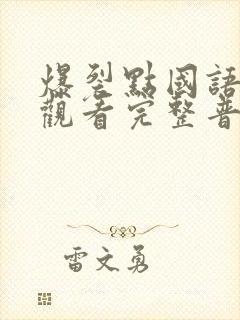 爆裂點國語
觀看完整普
雷文勇